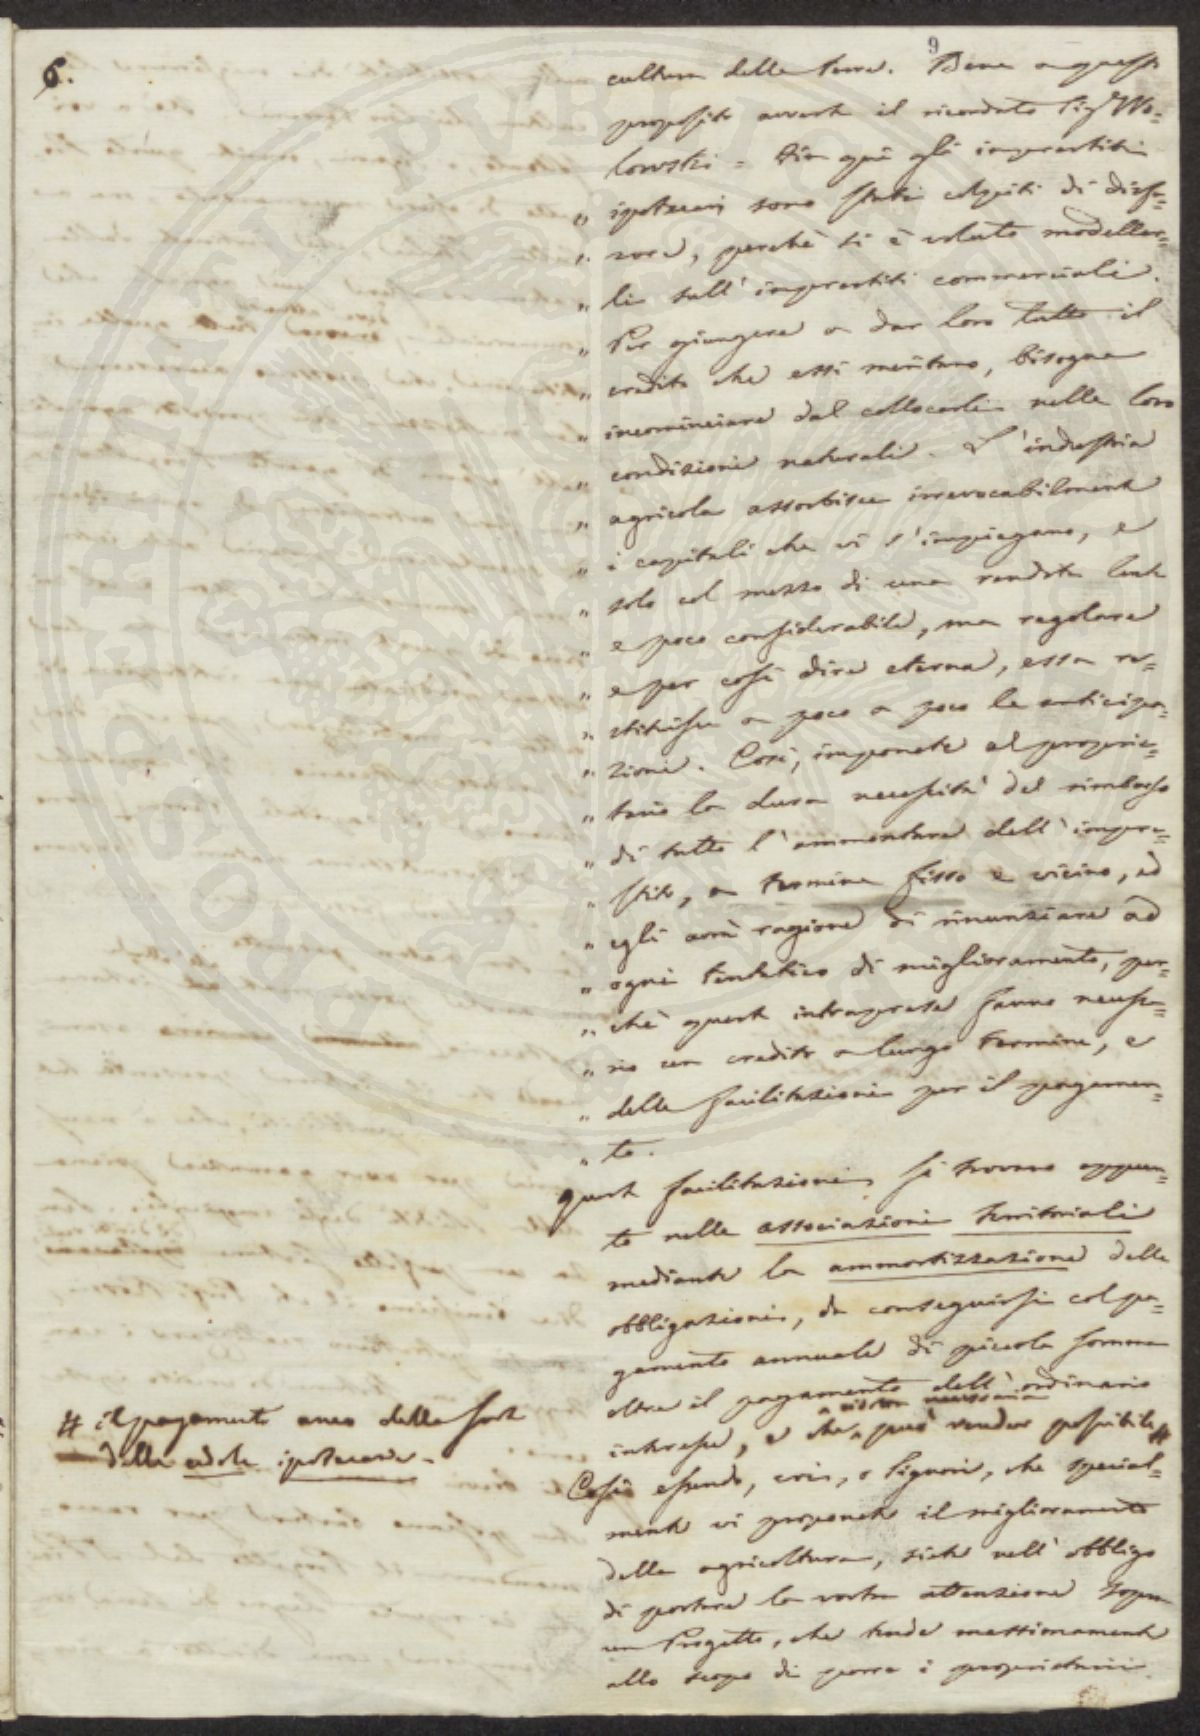 6.
9
cultura delle terre. Bene a questo
proposito avverte il ricordato Sig.r Wo=
lowski = Fin quì gli imprestiti
" ipotecarj sono stati colpiti di disfa=
" vore, perchè si è voluto modellar=
" li sull'imprestiti commerciali.
" Per giungere a dar loro tutto il
" credito che essi meritano, bisogna
" incominciare dal collocarli nelle loro
" condizioni naturali. L'industria
" agricola assorbisce irrevocabilmente
" i capitali che vi s'impiegano, e
" solo col mezzo di una rendita lenta
" e poco considerabile, ma regolare
" e per così dire eterna, essa re=
" stituisce a poco a poco le anticipa=
" zioni. Così, imponete al proprie=
" tario la dura necessità del rimborso
" di tutto l'ammontare dell'impre=
" stito, a termine fisso e vicino, ed
" egli avrà ragione di rinunziare ad
" ogni tentativo di miglioramento, per=
" chè queste intraprese fanno necessa=
" rio un credito a lungo termine, e
" delle facilitazioni per il pagamen=
" to.
Queste facilitazioni si trovano appun=
to nelle associazioni territoriali
mediante la ammortizzazione delle
obbligazioni, da conseguirsi col pa=
gamento annuale di piccola somma
oltre il pagamento dell'ordinario
interesse, e che può render possibile #
# il pagamento anco della sorte
della cedola ipotecaria.
Così essendo, voi, o Signori, che special=
mente vi proponete il miglioramento
della agricoltura, siete nell'obbligo
di portare la vostra attenzione sopra
un Progetto, che tende massimamente
allo scopo di porre i proprietarii